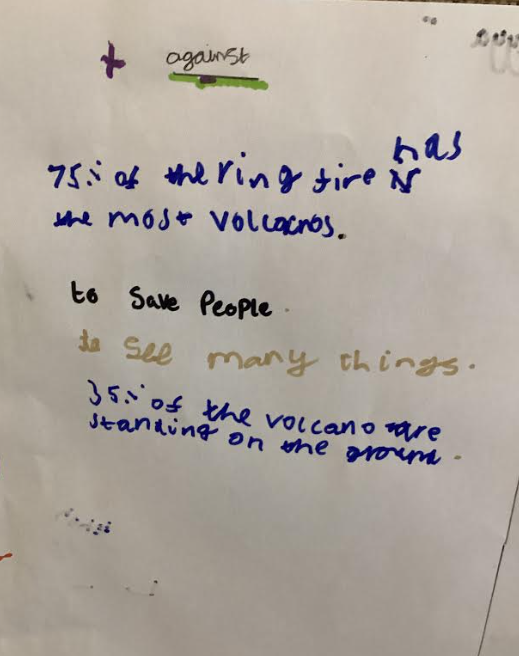 + against
has
75% of the ring fire is
the most volcacnos.
to save People.
to see many things.
35% of the volcano are
standing on the ground.